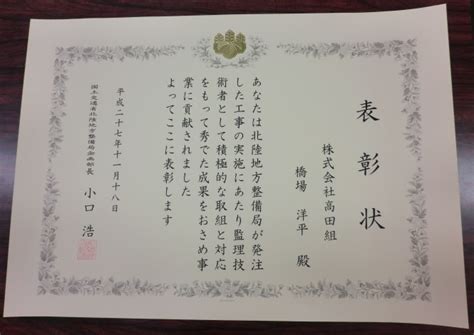 表彰状
株式会社高田組
橋場 洋平 殿
あなたは北陸地方整備局が発注
した工事の実施にあたり監理技
術者として積極的な取組と対応
をもって秀でた成果をおさめ事
業に貢献されました
よってここに表彰します
平成二十七年十一月十八日
国土交通省北陸地方整備局企画部長
小口 浩